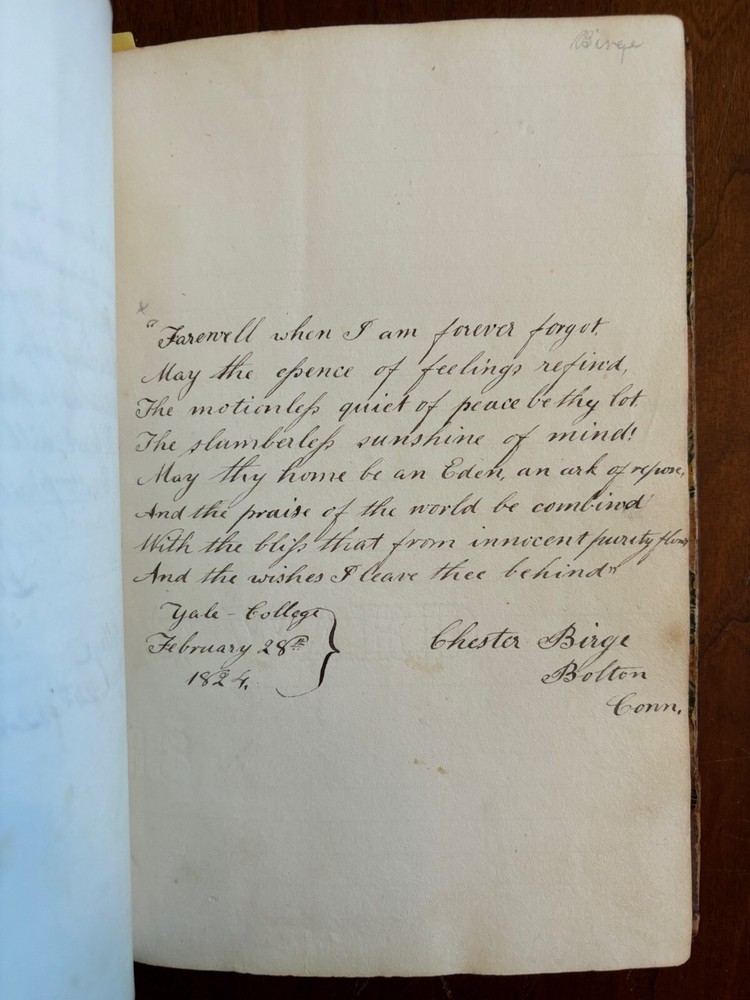 Birge
"Farewell when I am forever forgot,
May the essence of feelings refin'd,
The motionless quiet of peace be thy lot.
The slumberless sunshine of mind!
May thy home be an Eden, an ark of repose,
And the praise of the world be combin'd
With the bliss that from innocent purity flows
And the wishes I leave thee behind"
Yale - College
February 28th
1824.
Chester Birge
Bolton
Conn.